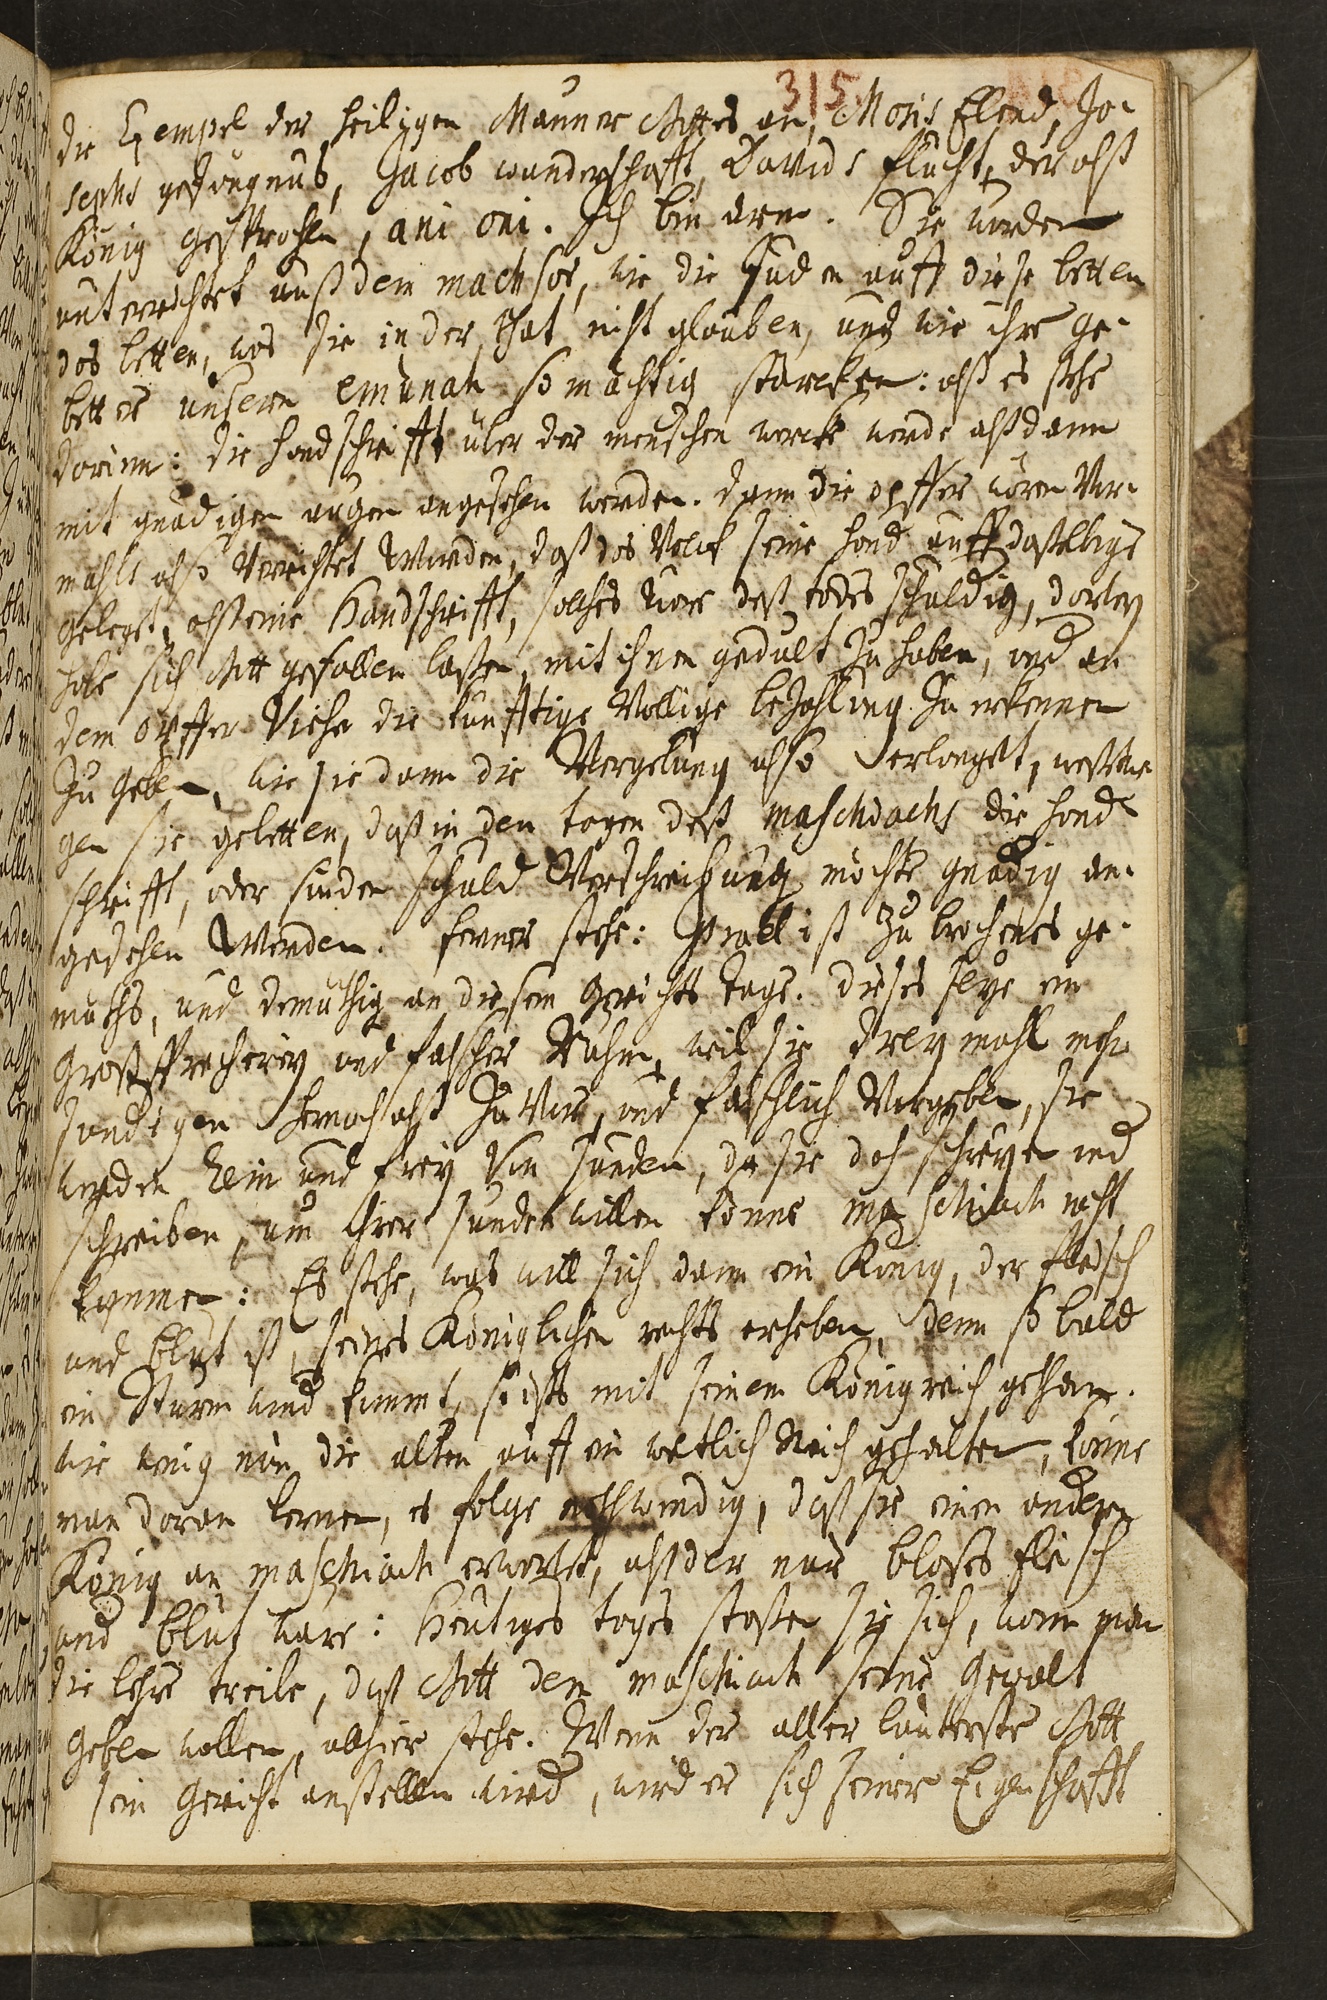 315.
die Exempel der heiligen Männer Gottes an, Mosis Elend, Jo-
sephs gefängnus, Jacob wanderschafft, Davids flucht, der alß
König gesprochen, ani oni. Ich bin arm. Sie werden
unterrichtet auß dem machsor, wie die Juden auff diese
das betten, was sie in der That nicht glauben, und wie ihre ge-
bett er unsern emunah so mächtig stärcken: alß es stehe
darinn: die handschrifft über der menschen wercke werde alßdann
mit gnädigen augen angesehen werden. dann die opffer wären Vor-
mahls also Verrichtet worden, daß das Volck seine hand auff dasselbige
gelegt, alß eine Handschrifft, solches wäre deß todes schuldig, darbey
habe sich Gott gefallen laßen, mit ihnen gedult zu haben, und an
dem opffer Viehe die künfftige Völlige bezahlung zu erkennen
zu geben, wie sie dann die Vergebung also erlanget, weßwe-
gen sie gebetten, daß in den tagen deß maschiachs die hand-
schrifft, oder sünden schuld Verschreibung möchte gnädig an-
gesehen werden. ferner stehe: Israel ist zu brochenes ge-
müths, und demüthig an diesem Gerichts tage. dieses seye ein
Großsprecherey und falscher Ruhm, weil sie drey mahl mehr
sündigen hernach alß zu Vor, und fälschlich Vorgeben, sie
werden rein und frey Von sünden, da sie doch schreyen und
schreiben, um ihrer sünden willen könne maschiach nicht
kommen: Es stehe, was will sich dann ein König, der fleisch
und blut ist, seines Königlichen rechts erheben, denn so bald
ein Sturm wind kommt, so ists mit seinem Königreich gethan.
wie wenig nun die alten auff ein weltlich Reich gehalten, könne
man daran lernen, es folge nothwendig, daß sie einen andern
König an maschiach erwartet, alß der nur bloßes fleisch
und blut wäre: Heutiges tages stoßen sie sich, wann man
die lehre treibe, daß Gott dem maschiach seine Gewalt
geben wollen, allhier stehe. Wenn der aller lauterste Gott
sein Gericht anstellen wird, wird er sich seiner Eigenschafft